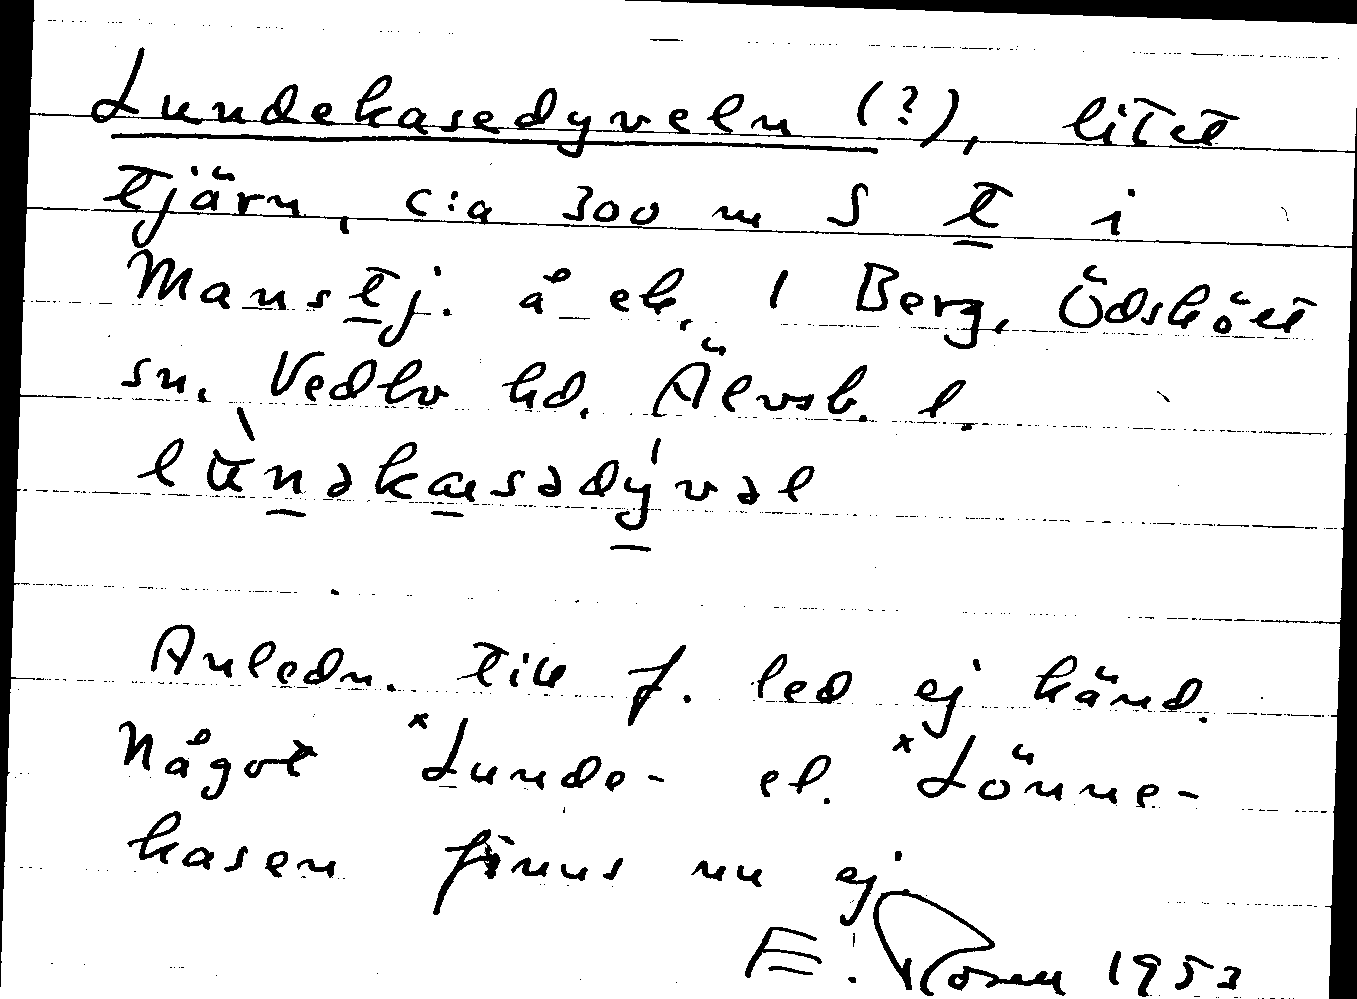 Lundekasedyveln (?), litet
tjärn, c:a 300 m S t i
Manstj. å ek. 1 Berg, Ödskölt
sn. Vedbo hd. Älvsb. l.
Anledn. till f. led ej känd.
Något *Lunde- el. *Lönne-
kasen finns nu ej.
E. Rosen 1953